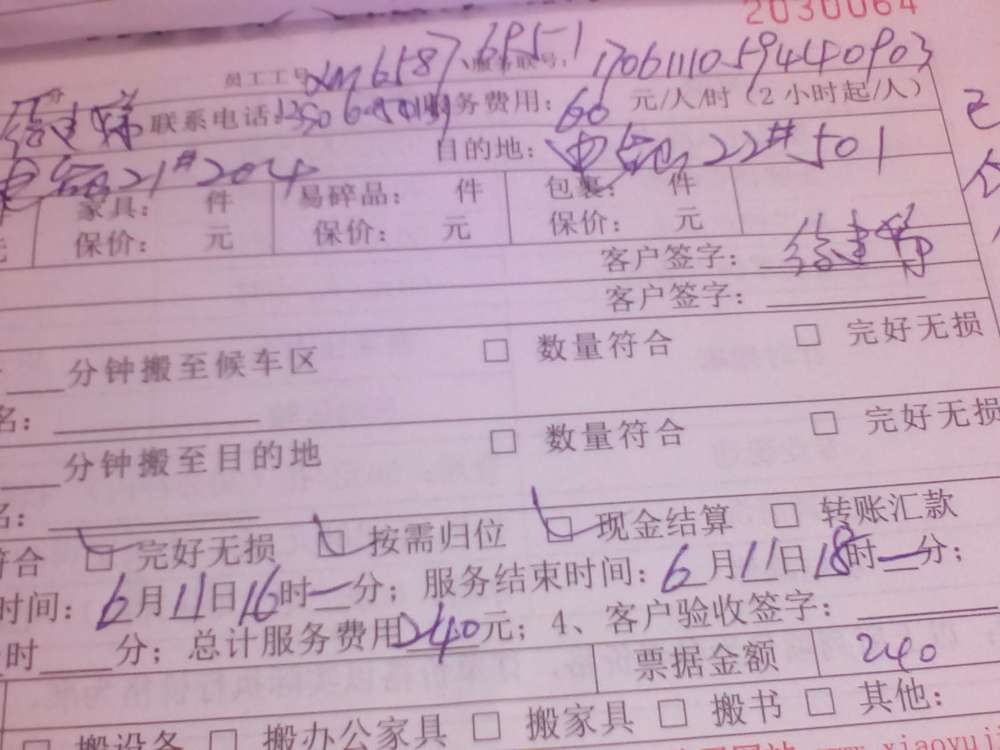 2030064
员工工号: 服务联号: 17061110594440903
联系电话: 务费用: 60 元/人/时（2小时起/人）
21#204 目的地: 22#501
家具: 件 易碎品: 件 包裹: 件
元 保价: 元 保价: 元 保价: 元
客户签字:
客户签字:
分钟搬至候车区 □ 数量符合 □ 完好无损
名:
分钟搬至目的地 □ 数量符合 □ 完好无损
名:
符合 ☑ 完好无损 ☑ 按需归位 ☑ 现金结算 □ 转账汇款
时间: 6月11日16时一分; 服务结束时间: 6月11日18时一分;
时 分; 总计服务费用240元; 4、客户验收签字:
票据金额 240
搬设备 □ 搬办公家具 □ 搬家具 □ 搬书 □ 其他: